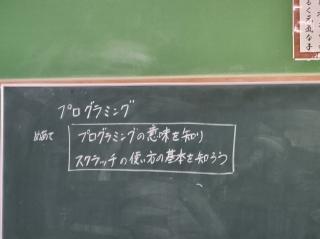 プログラミング
めあて
プログラミングの意味を知り
スクラッチの使い方の基本を知ろう